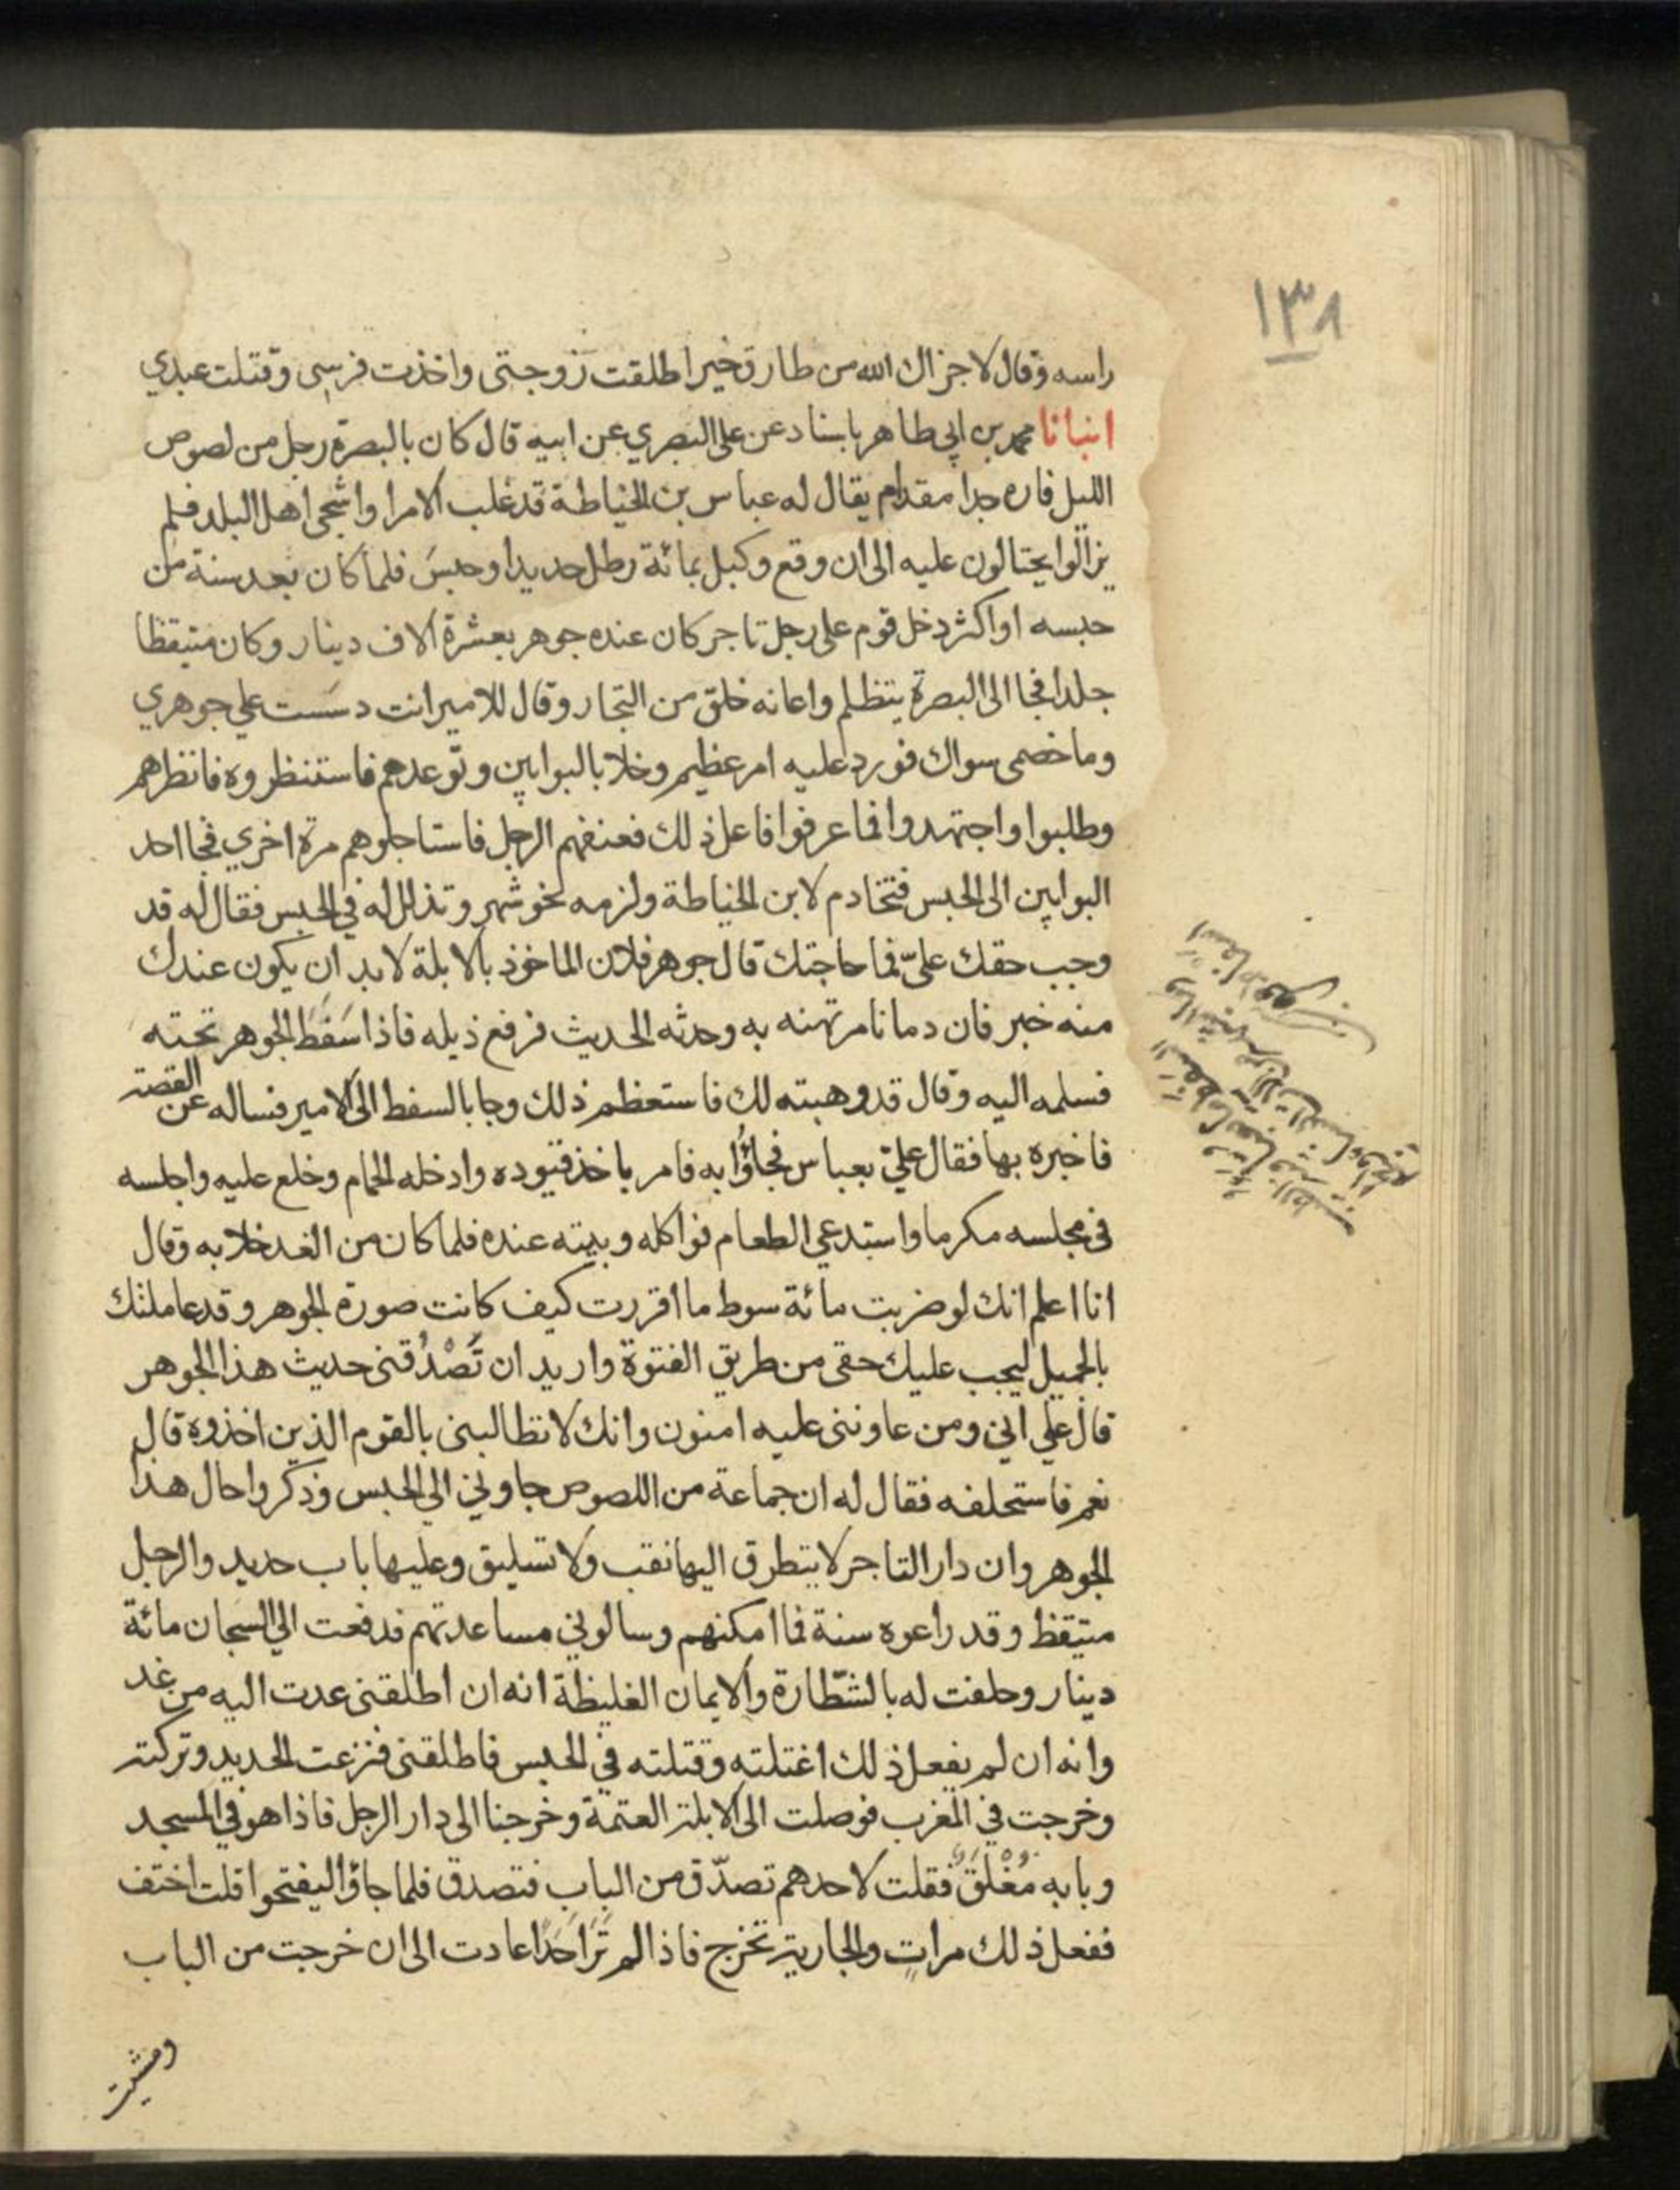 ١٣٨
راسه وقال لا جزاك الله من طارق خيرا طلقت زوجتى واخذت فرسى وقتلت عبدي
انبانا محمد بن ابي طاهر باسناد عن على البصري عن ابيه قال كان بالبصرة رجل من لصوص
الليل فاره جدا مقدام يقال له عباس بن الخياطة قد غلب الامرا واشجى اهل البلد فلم
يزالوا يحتالون عليه الى ان وقع وكبل بمائة رطل حديدا وحبسَ فلما كان بعد سنة من
حبسه او اكثر دخل قوم على رجل تاجر كان عنده جوهر بعشرة الاف دينار وكان متيقظا
جلدا فجا الى البصرة يتظلم واعانه خلق من التجار وقال للامير انت دسَست علي جوهري
وما خصمى سواك فورد عليه امر عظيم وخلا بالبوابين وتوعدهم فاستنظروه فانظرهم
وطلبوا واجتهدوا فما عرفوا فاعل ذلك فعنفهم الرجل فاستاجلوهم مرة اخري فجا احد
البوابين الى الحبس فتخادم لابن الخياطة ولزمه نحو شهر وتذلل له في الحبس فقال له قد
وجب حقك عليّ فما حاجتك قال جوهر فلان الماخوذ بالابلة لا بد ان يكون عندك
منه خبر فان دمانا مرتهنه به وحدثه الحديث فرفع ذيله فاذا سَفَط الجوهر تحته
فسلمه اليه وقال قد وهبته لك فاستعظم ذلك وجا بالسفط الى الامير فساله عن القصة
فاخبره بها فقال عليّ بعباس فجاؤا به فامر باخذ قيوده وادخله الحمام وخلع عليه واجلسه
فى مجلسه مكرما واستدعي الطعام فواكله وبيته عنده فلما كان من الغد خلا به وقال
انا اعلم انك لو ضربت مائة سوط ما اقررت كيف كانت صورة الجوهر وقد عاملتك
بالجميل ليجب عليك حقى من طريق الفتوة واريد ان تَصْدُقنى حديث هذا الجوهر
قال علي اني ومن عاوننى عليه امنون وانك لا تطالبنى بالقوم الذين اخذوه قال
نعم فاستحلفه فقال له ان جماعة من اللصوص جاوني الي الحبس وذكروا حال هذا
الجوهر وان دار التاجر لا يتطرق اليها نقب ولا تسليق وعليها باب حديد والرجل
متيقظ وقد راعوه سنة فما امكنهم وسالوني مساعدتهم فدفعت الي السجان مائة
دينار وحلفت له بالشّطارة والايمان الغليظة انه ان اطلقنى عدت اليه من غد
وانه ان لم يفعل ذلك اغتلته وقتلته في الحبس فاطلقنى فنزعت الحديد وتركته
وخرجت في المغرب فوصلت الى الابلة العتمة وخرجنا الى دار الرجل فاذا هو في المسجد
وبابه مُغْلَقٌ فقلت لاحدهم تصدّق من الباب فتصدق فلما جاؤا ليفتحوا قلت اختف
ففعل ذلك مرات والجارية تخرج فاذا لم تَرَ احدًا عادت الى ان خرجت من الباب
ومشيت